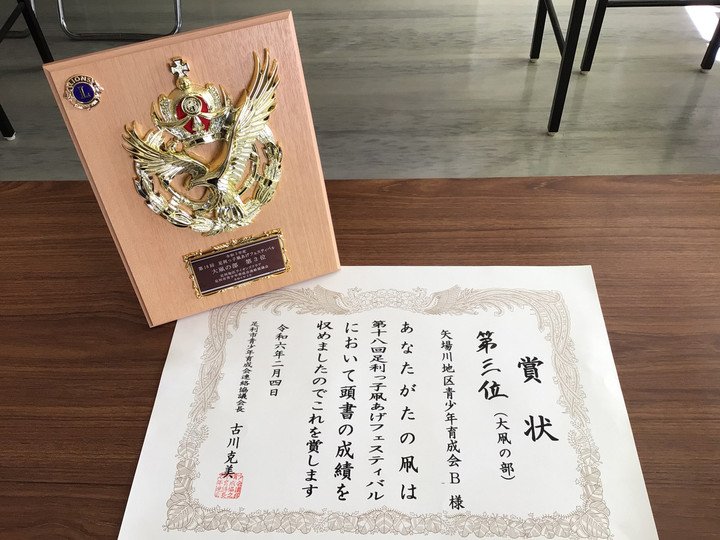 LIONS
L
第18回 足利っ子凧あげフェスティバル
大凧の部 第3位
賞状
第三位(大凧の部)
矢場川地区青少年育成会B 様
あなたがたの凧は
第十八回足利っ子凧あげフェスティバル
において頭書の成績を
収めましたのでこれを賞します
令和六年二月四日
足利市青少年育成会連絡協議会長
古川克美